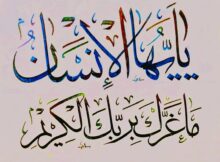 يَا أَيُّهَا الْإِنْسَانُ
مَا غَرَّكَ بِرَبِّكَ الْكَرِيمِ